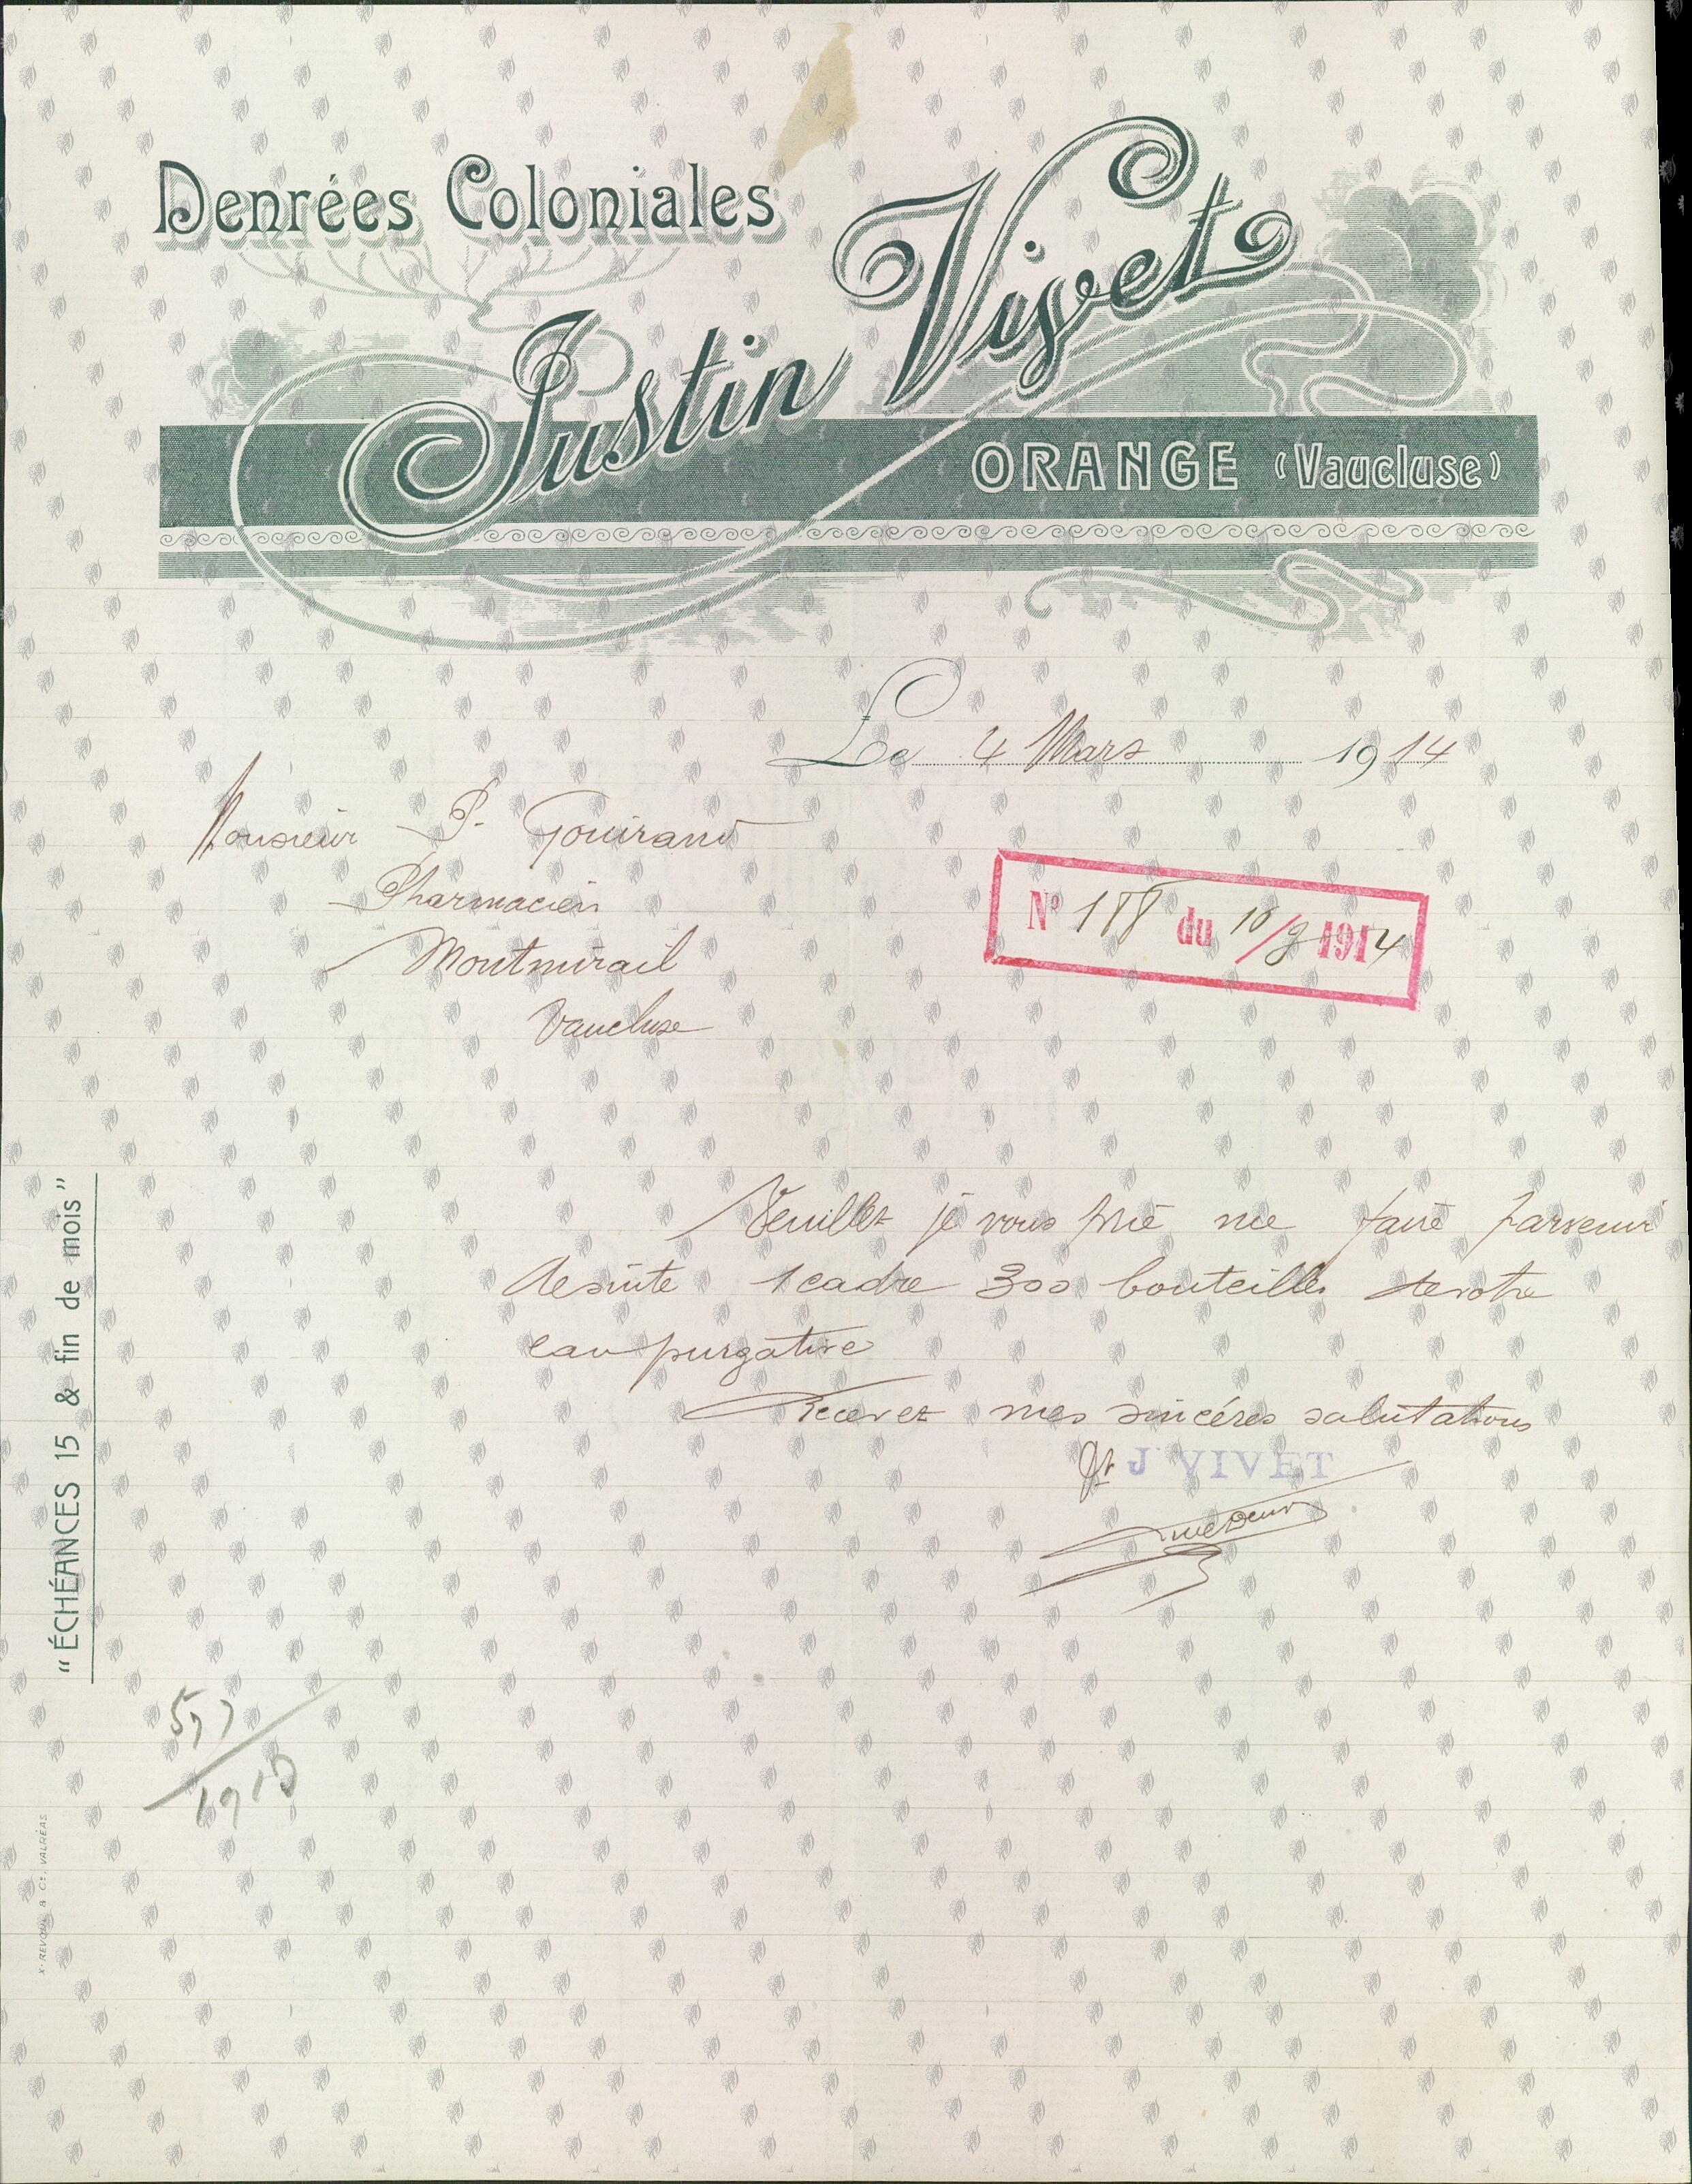 Denrées Coloniales
Justin Vivet
ORANGE (Vaucluse)
Le 4 Mars 1914
Monsieur P. Gouirand
Pharmacien
Montmirail
Vaucluse
N° 188 du 10/3 1914
Veuillez je vous prie me faire parvenir
de suite 1 cadre 300 bouteilles de votre
eau purgative
Recevez mes sincéres salutations
J. VIVET
"ÉCHÉANCES 15 & fin de mois"
1913
X. REVOUL & Cie. VALRÉAS